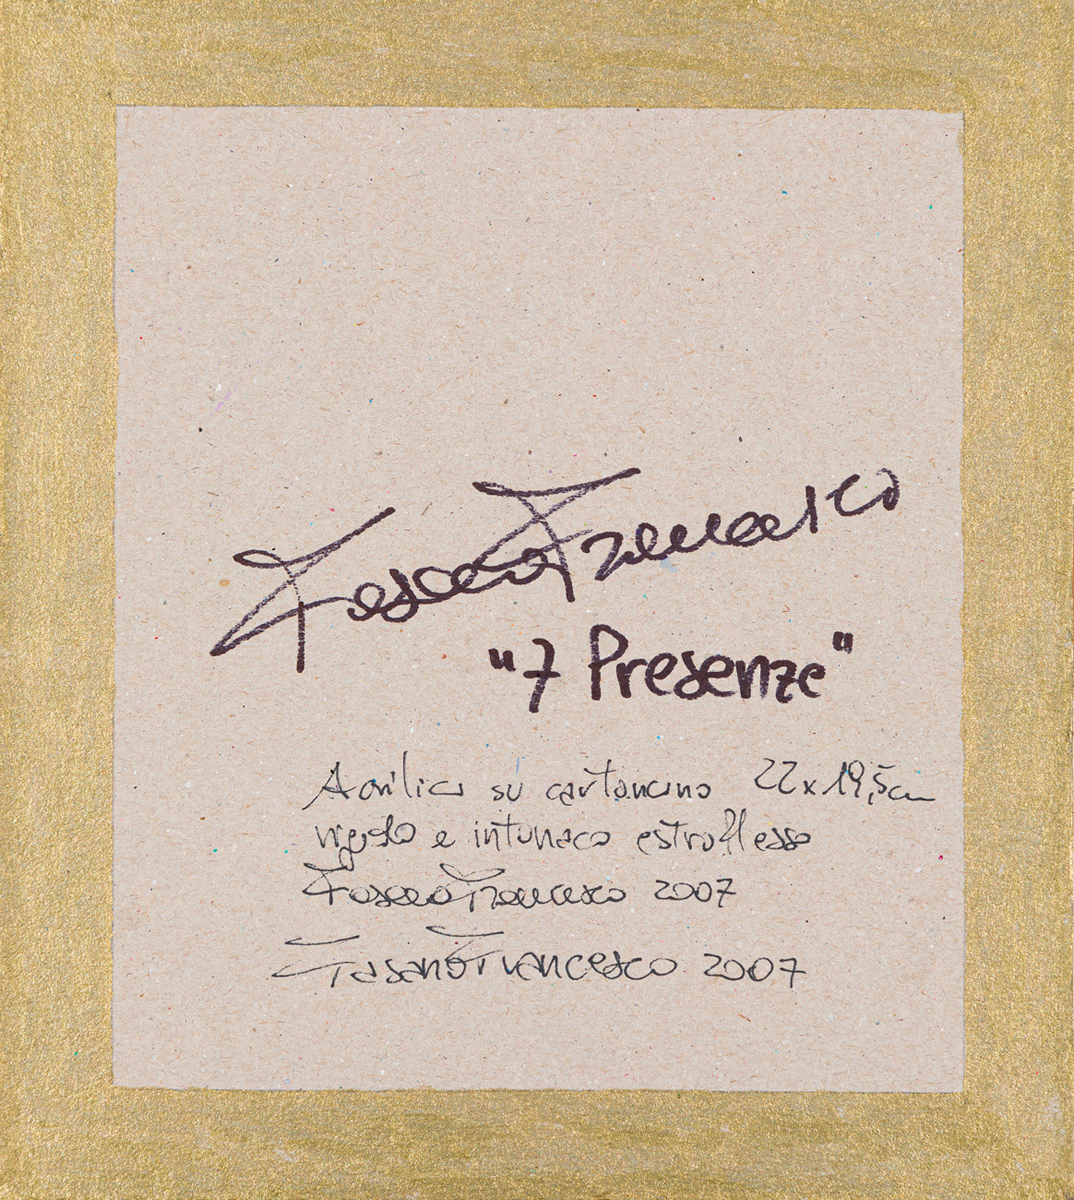 Fasano Francesco
"7 Presenze"
Acrilici su cartoncino 22x19,5cm
e intonaco estroflesso
Fasano Francesco 2007
Fasano Francesco 2007